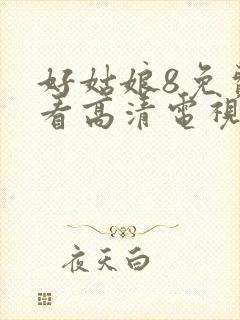 好姑娘8免
看高清電視
夜天白